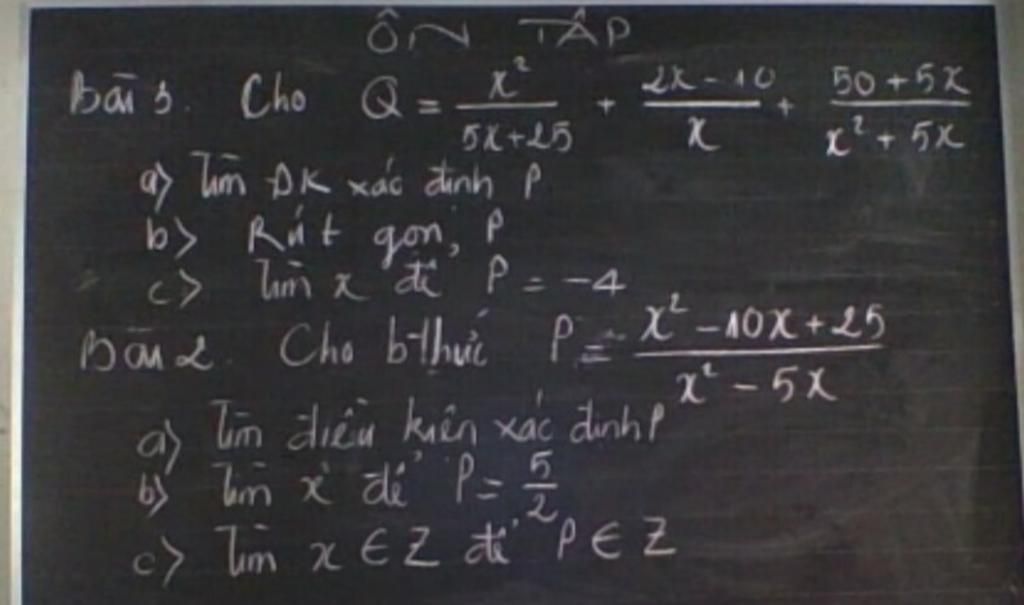 ÔN TẬP
Bài 3. Cho Q = x²/(5x+25) + (2x-10)/x + (50+5x)/(x²+5x)
a) Tìm ĐK xác định P
b) Rút gọn, P
c) Tìm x để P = -4
Bài 2. Cho b-thức P = (x²-10x+25)/(x²-5x)
a) Tìm điều kiện xác định P
b) Tìm x để P = 5/2
c) Tìm x ∈ Z để P ∈ Z